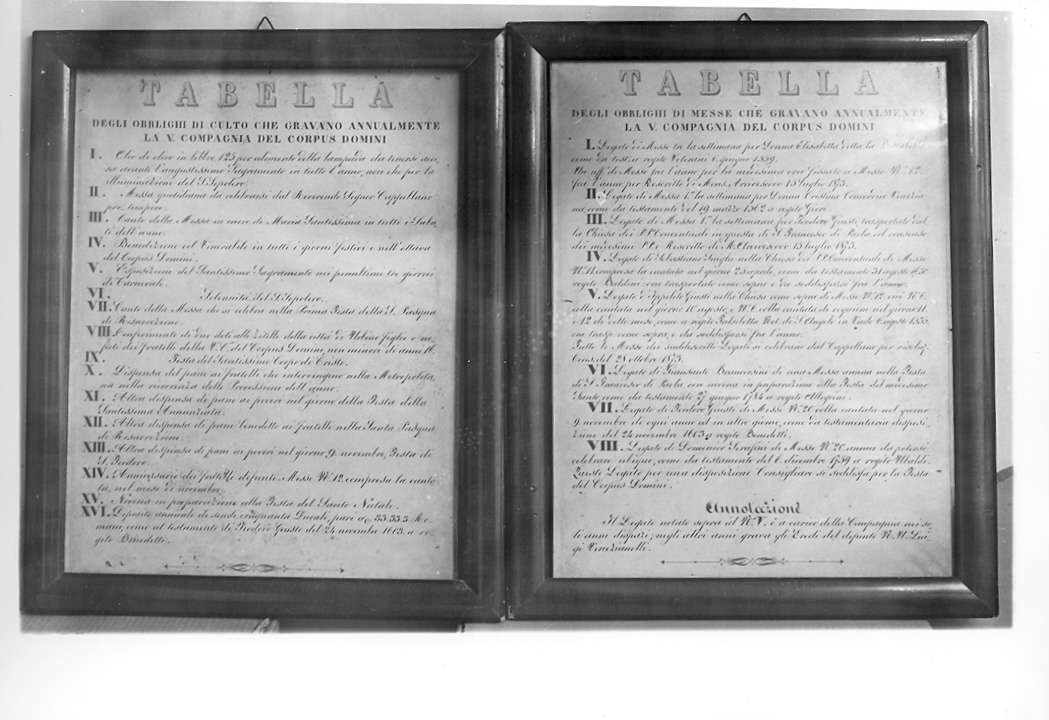 TABELLA
DEGLI OBBLIGHI DI CULTO CHE GRAVANO ANNUALMENTE
LA V. COMPAGNIA DEL CORPUS DOMINI
I. Olio di olivo in libbre 125 per alimento della lampada da tenersi acce-
sa avanti l'augustissimo Sagramento in tutto l'anno, non che per la
illuminazione del S. Sepolcro.
II. Messa quotidiana da celebrarsi dal Reverendo Signor Cappellano
pro-tempore.
III. Canto della Messa in onore di Maria Santissima in tutti i Saba-
ti dell'anno.
IV. Benedizione col Venerabile in tutti i giorni festivi e nell'ottava
del Corpus Domini.
V. Esposizione del Santissimo Sagramento nei penultimi tre giorni
di Carnevale.
VI. Solennità del S. Sepolcro.
VII. Canto della Messa che si celebra nella Prima Festa della S. Pasqua
di Risurrezione.
VIII. Conferimento di due doti alle zitelle della città di Urbino figlie o ni-
poti dei fratelli della V. C. del Corpus Domini, non minori di anni 16.
IX. Festa del Santissimo Corpo di Cristo.
X. Dispensa del pani ai fratelli che intervengono nella Metropolita-
na nella ricorrenza delle Processioni dell'anno.
XI. Altra dispensa di pani ai poveri nel giorno della Festa della
Santissima Annunziata.
XII. Altra dispensa di pane benedetto ai fratelli nella Santa Pasqua
di Risurrezione.
XIII. Altra dispensa di pani ai poveri nel giorno 9. novembre, Festa di
S. Teodoro.
XIV. Anniversario dei fratelli defunti. Messe N.° 12. compresa la canta-
ta, nel mese di novembre.
XV. Novena in preparazione alla Festa del Santo Natale.
XVI. Deposito annuale di scudi cinquanta Ducali, pari a 33.33.3 Ro-
mani, come al testamento di Teodoro Giusti del 24 novembre 1603. a ro-
gito Benedetti.
TABELLA
DEGLI OBBLIGHI DI MESSE CHE GRAVANO ANNUALMENTE
LA V. COMPAGNIA DEL CORPUS DOMINI
I. Legato di Messe tre la settimana per Donna Elisabetta detta la
come da test. a rogito Veterani 6 giugno 1559.
di Messe fra l'anno per la medesima ora fissato a Messe N.° 12.
fra l'anno per Rescritto di Mons. Arcivescovo 15 luglio 1873.
II. Legato di Messe 1.a la settimana per Donna Cristina
come da testamento del 19 marzo 1562 a rogito
III. Legato di Messe 1.a la settimana per Teodoro Giusti, trasportato dal-
la Chiesa dei P.P. Conventuali in questa di S. Francesco di Paola col consenso
dei medesimi P.P. e Rescritto di M. Arcivescovo 15 luglio 1873.
IV. Legato di Sebastiano nella Chiesa dei P.P. Conventuali di Messe
N. 11 compresa la cantata nel giorno 25 aprile, come da testamento 31 agosto
rogito ora trasportato come sopra e da soddisfarsi fra l'anno.
V. Legato d'Ippolito Giusti nella Chiesa come sopra di Messe N.° 12. cioè N.° 6.
colla cantata nel giorno 10 agosto, e N.° 6. colla cantata di requiem nel giorno 11.
o 12 di detto mese, come a rogito Not. di S. Angelo in Vado 6 agosto 1555.
ora trasp. come sopra, e da soddisfarsi fra l'anno.
Tutte le Messe dei suddescritti Legati si celebrano dal Cappellano per risoluz.
Cons. del 28 ottobre 1873.
VI. Legato di Giansante Brancorsini di una Messa annua nella Festa
di S. Francesco di Paola con novena in preparazione alla Festa del medesimo
Santo come da testamento 27 giugno 1784 a rogito Allegrini.
VII. Legato di Teodoro Giusti di Messe N.° 26 colla cantata nel giorno
9. novembre di ogni anno ed in altro giorno, come da testamentaria disposi-
zione del 24 novembre 1603 a rogito Benedetti.
VIII. Legato di Domenico Serafini di Messe N.° 20. annue da potersi
celebrare ubique, come da testamento del 6 dicembre 1759 a rogito Ubaldi.
Questo Legato per una disposizione Consigliare si soddisfa per la Festa
del Corpus Domini.
Annotazione
Il Legato notato sopra il N.° V. è a carico della Compagnia nei so-
li anni dispari; negli altri anni grava gli Eredi del defunto N. H. Lui-
gi Veneranelli.